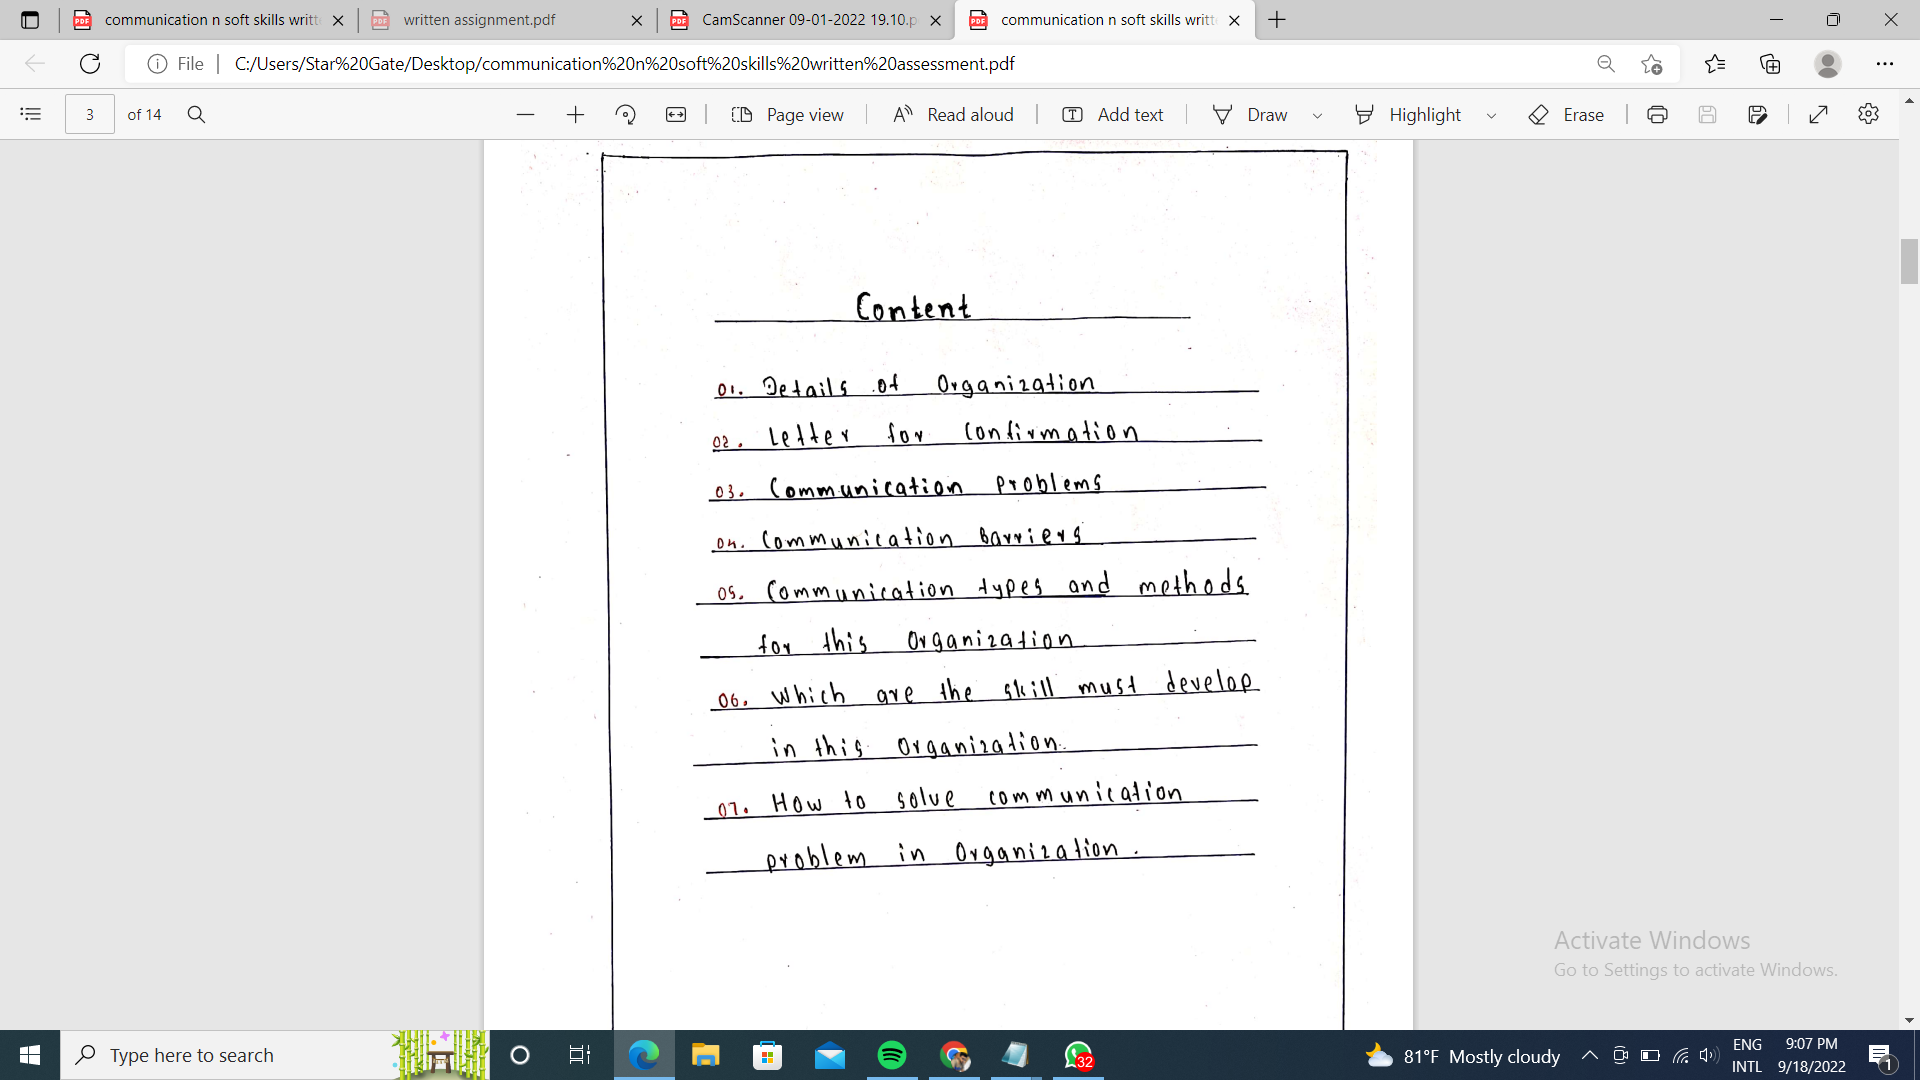 communication n soft skills writt
written assignment.pdf
CamScanner 09-01-2022 19.10.p
communication n soft skills writt
File
C:/Users/Star%20Gate/Desktop/communication%20n%20soft%20skills%20written%20assessment.pdf
3 of 14
Page view
Read aloud
Add text
Draw
Highlight
Erase
Content
01. Details of Organization
02. Letter for Confirmation
03. Communication Problems
04. Communication Barriers
05. Communication types and methods
for this Organization
06. Which are the skill must develop
in this Organization.
07. How to solve communication
problem in Organization.
Activate Windows
Go to Settings to activate Windows.
Type here to search
32
81°F Mostly cloudy
ENG
INTL
9:07 PM
9/18/2022
1